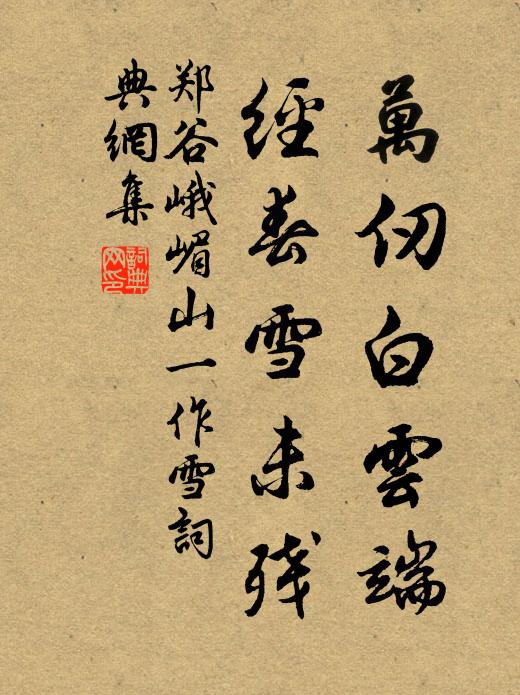 萬仞白雲端
經春雪未残
郑谷峨嵋山一作雪詞
典網集
詞典
网印